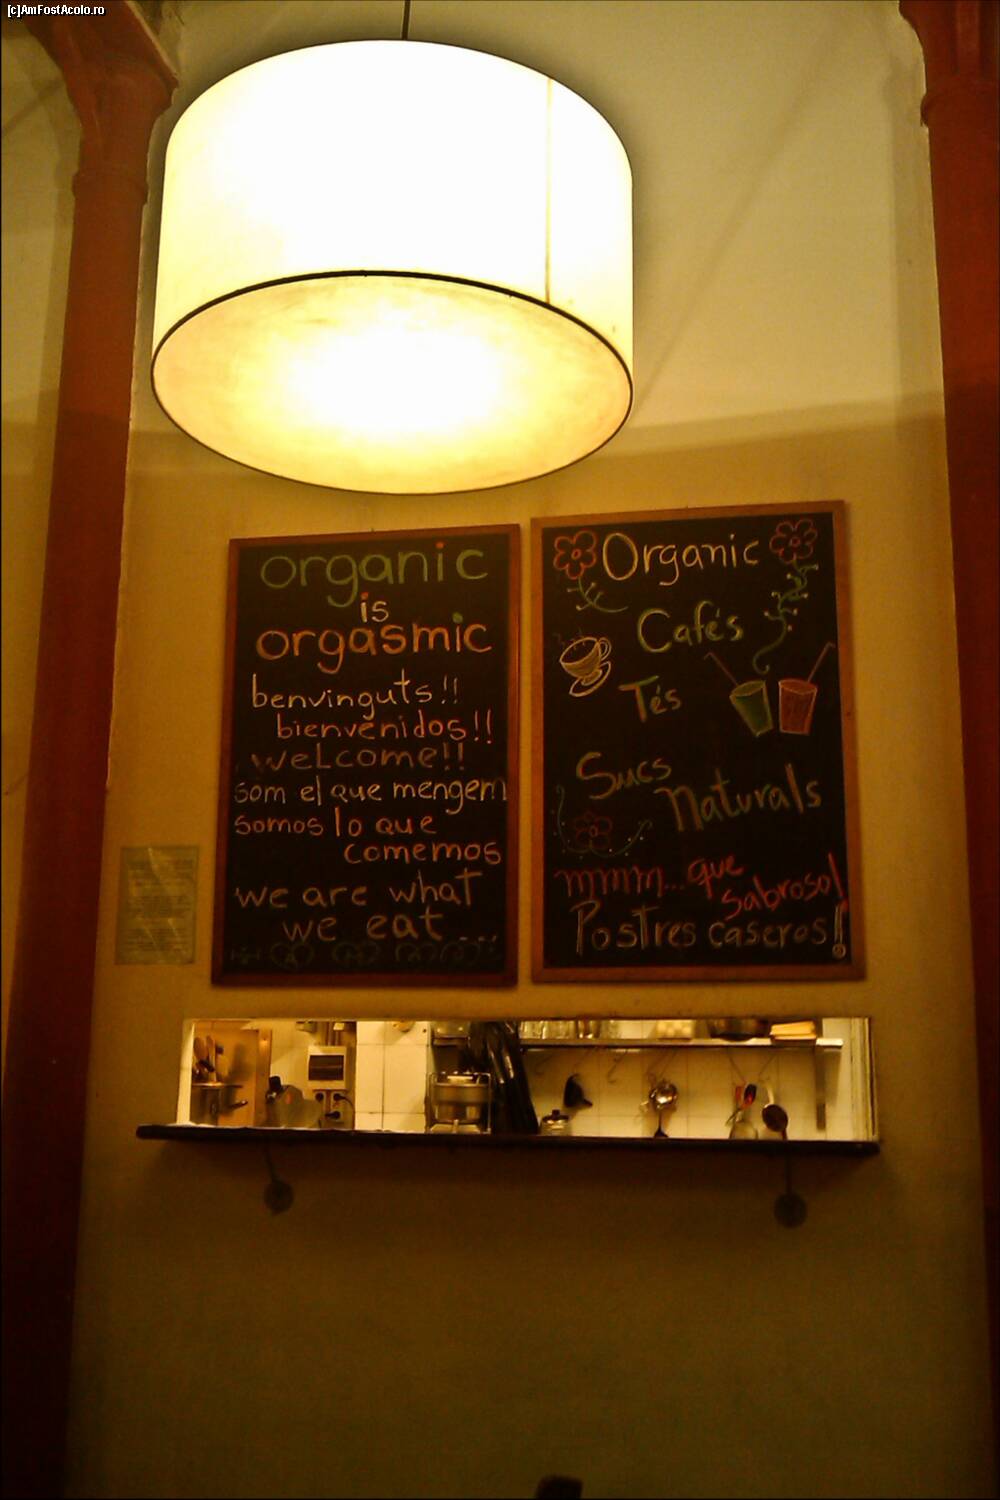 [c]AmFostAcolo.ro
organic
is
orgasmic
benvinguts!!
bienvenidos!!
weLcome!!
som el que mengem
somos lo que
comemos
we are what
we eat...
Organic
Cafés
Tés
Sucs
Naturals
mmm...que
Sabroso!
Postres caseros!